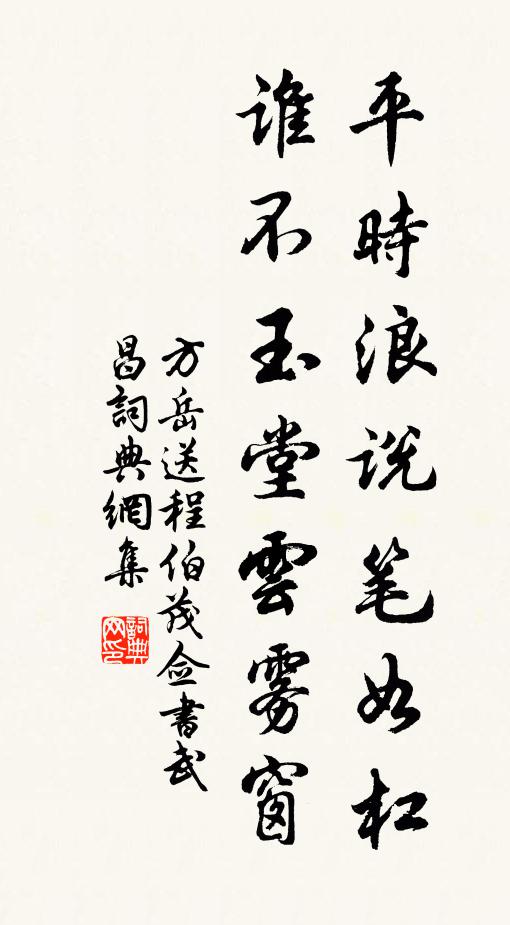 平時浪说笔如杠
誰不玉堂雲雾窗
方岳送程伯茂佥書武
昌詞典網集
詞典网印